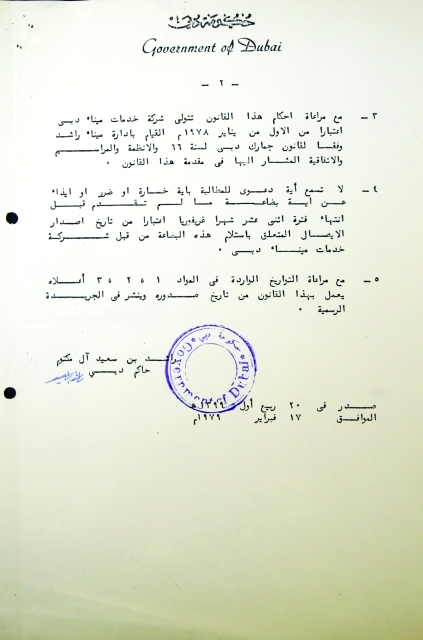 حكومة دبي
Government of Dubai
- ٢ -
٣ - مع مراعاة احكام هذا القانون تتولى شركة خدمات ميناء دبي
اعتبارا من الاول من يناير ١٩٧٨م القيام بادارة ميناء راشد
وفقا لقانون جمارك دبى لسنة ٦٦ والانظمة والمراسيم
والاتفاقية المشار اليها فى مقدمة هذا القانون .
٤ - لا تسمع أية دعوى للمطالبة باية خسارة او ضرر او ايذاء
عن اية بضاعة ما لم تقدم قبل
انتهاء فترة اثنى عشر شهرا غريغوريا اعتبارا من تاريخ اصدار
الايصال المتعلق باستلام هذه البضاعة من قبل شركة
خدمات ميناء دبى .
٥ - مع مراعاة التواريخ الواردة فى المواد ١ ، ٢ ، ٣ أعلاه
يعمل بهذا القانون من تاريخ صدوره وينشر فى الجريدة
الرسمية .
حكومة دبي
Government of Dubai
راشد بن سعيد آل مكتوم
حاكم دبي
صدر فى ٢٠ ربيع أول ١٣٩٩ ه
الموافق ١٧ فبراير ١٩٧٩م